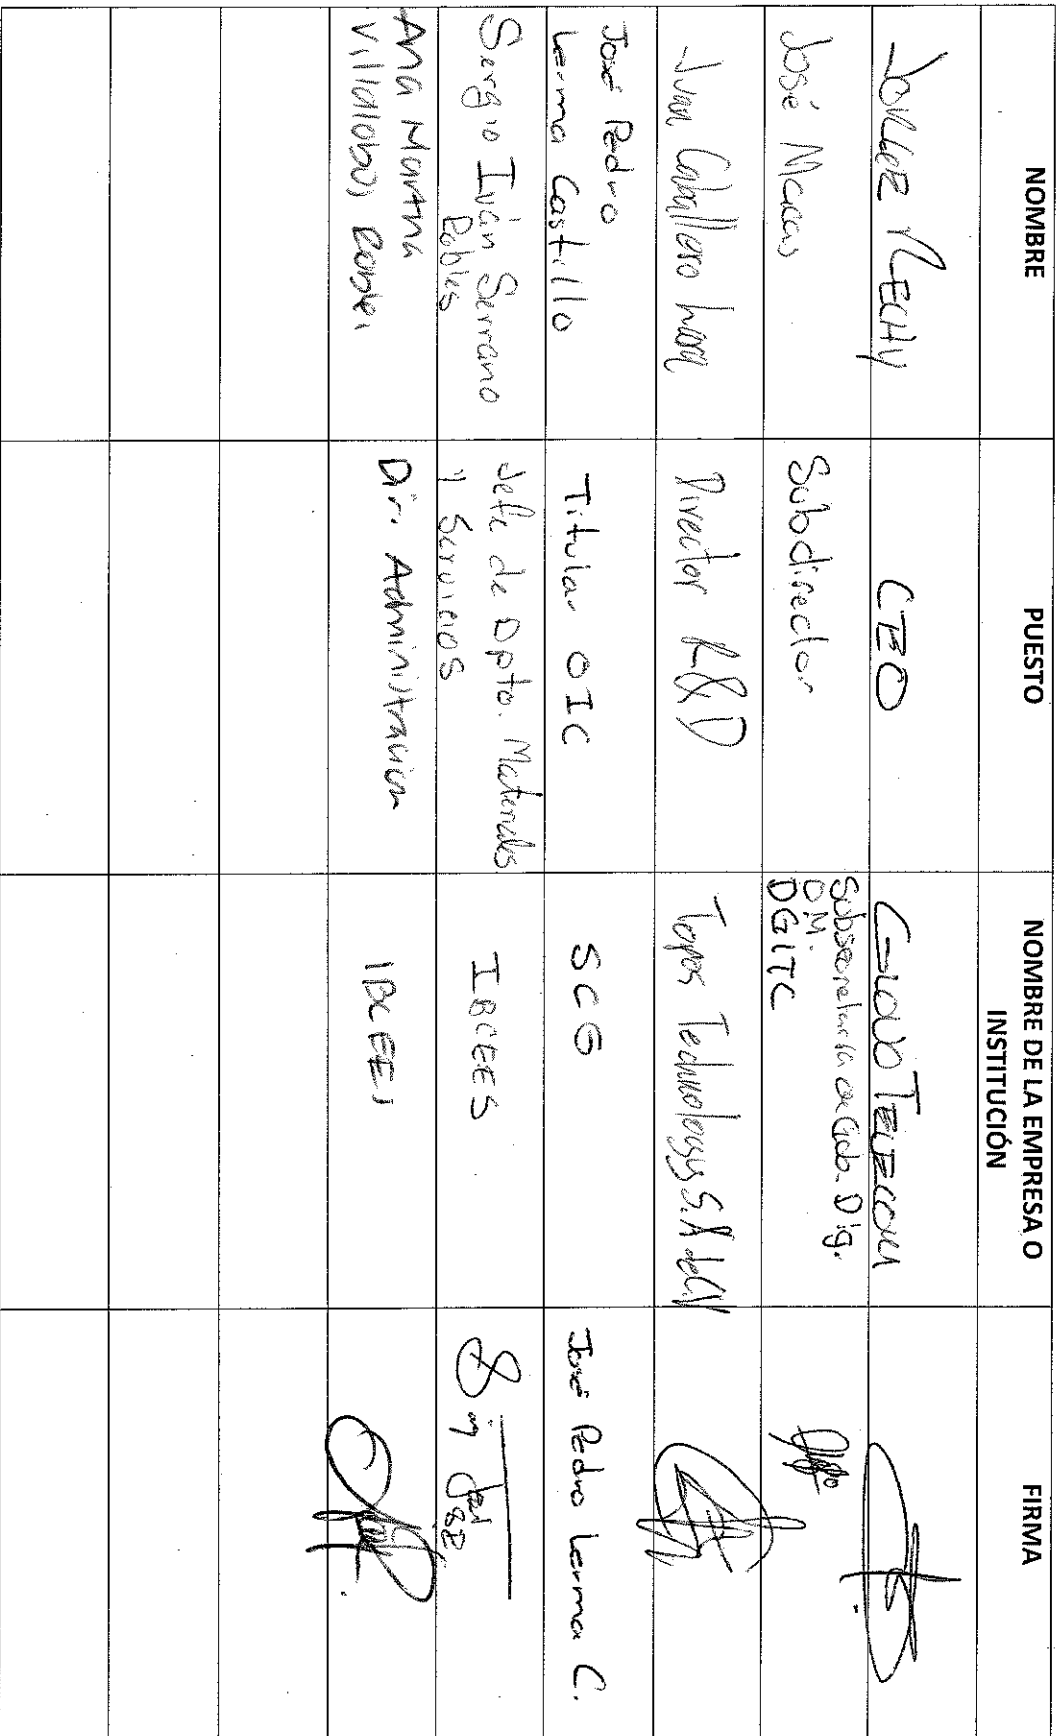 NOMBRE PUESTO NOMBRE DE LA EMPRESA O FIRMA
INSTITUCIÓN
JORGE RECHY CEO CLOUD TELECOM
José Macias Subdirector Subsecretaría de Gob. Dig.
D.M.
DGITC
Juan Caballero Lara Director R&D Topos Technology S.A de C.V
José Pedro
Lerma Castillo Titular OIC SCG José Pedro Lerma C.
Sergio Iván Serrano
Robles Jefe de Dpto. Materiales
y Servicios IBCEES
Ana Martha
Villalobos Robles Dir. Administracion IBCEES